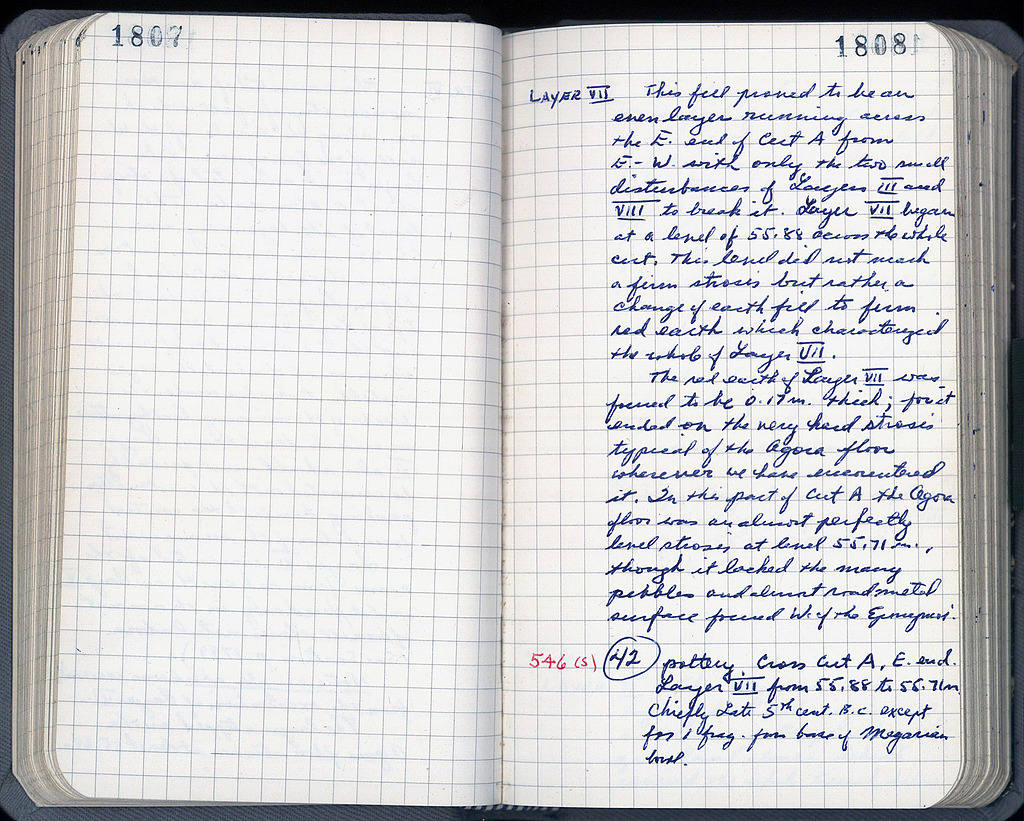 1807
1808
LAYER VII This fill proved to be an
even layer running across
the E. end of Cut A from
E.- W. with only the two small
disturbances of Layers III and
VIII to break it. Layer VII began
at a level of 55.88 across the whole
cut. This level did not mark
a firm strosis but rather a
change of earth fill to firm
red earth which characterized
the whole of Layer VII.
The red earth of Layer VII was
found to be 0.17m. thick; for it
ended on the very hard strosis
typical of the Agora floor
wherever we have encountered
it. In this part of Cut A the Agora
floor was an almost perfectly
level strosis at level 55.71 m.,
though it lacked the many
pebbles and almost road metal
surface found W. of the Eponymoi.
546 (S) 42 pottery. Cross Cut A, E. end.
Layer VII from 55.88 to 55.71m
Chiefly Late 5th cent. B.C. except
for 1 frag. from base of Megarian
bowl.